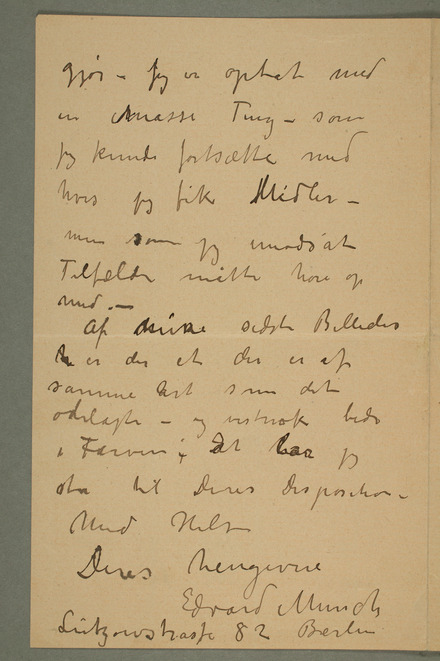 gjør – Jeg er optat med
en Masse Ting – som
jeg kunde fortsætte med
hvis jeg fik Midler –
men som jeg i modsat
Tilfælde måtte høre op
med –
Af mine sidste Billeder
er der et der er af
samme Art som det
ødelagte – og vistnok bedre
i Farven; Det har jeg
til Deres Disposition –
Med Hilsen
Deres hengivne
Edvard Munch
Lützowstrasse 82 Berlin